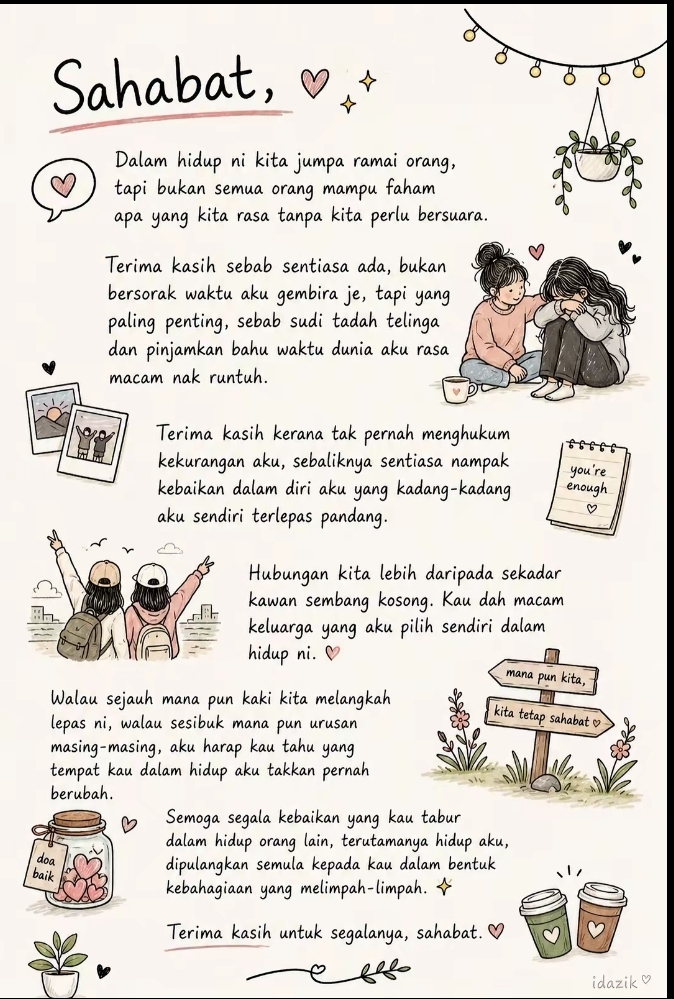 Sahabat,
Dalam hidup ni kita jumpa ramai orang,
tapi bukan semua orang mampu faham
apa yang kita rasa tanpa kita perlu bersuara.
Terima kasih sebab sentiasa ada, bukan
bersorak waktu aku gembira je, tapi yang
paling penting, sebab sudi tadah telinga
dan pinjamkan bahu waktu dunia aku rasa
macam nak runtuh.
Terima kasih kerana tak pernah menghukum
kekurangan aku, sebaliknya sentiasa nampak
kebaikan dalam diri aku yang kadang-kadang
aku sendiri terlepas pandang.
you're
enough
Hubungan kita lebih daripada sekadar
kawan sembang kosong. Kau dah macam
keluarga yang aku pilih sendiri dalam
hidup ni.
mana pun kita,
kita tetap sahabat
Walau sejauh mana pun kaki kita melangkah
lepas ni, walau sesibuk mana pun urusan
masing-masing, aku harap kau tahu yang
tempat kau dalam hidup aku takkan pernah
berubah.
doa
baik
Semoga segala kebaikan yang kau tabur
dalam hidup orang lain, terutamanya hidup aku,
dipulangkan semula kepada kau dalam bentuk
kebahagiaan yang melimpah-limpah.
Terima kasih untuk segalanya, sahabat.
idazik